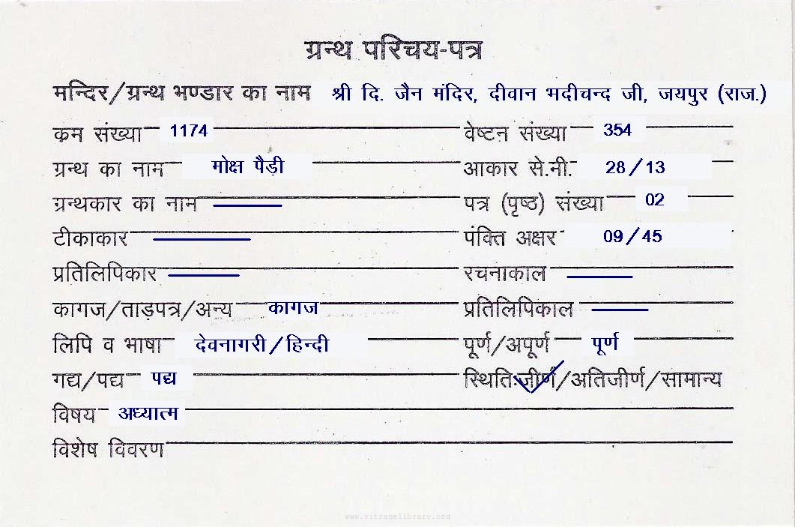 ग्रन्थ परिचय-पत्र
मन्दिर/ग्रन्थ भण्डार का नाम श्री दि. जैन मंदिर, दीवान भदीचन्द जी, जयपुर (राज.)
कम संख्या 1174 वेष्टन संख्या 354
ग्रन्थ का नाम मोक्ष पैड़ी आकार से.मी. 28/13
ग्रन्थकार का नाम पत्र (पृष्ठ) संख्या 02
टीकाकार पंक्ति अक्षर 09/45
प्रतिलिपिकार रचनाकाल
कागज/ताड़पत्र/अन्य कागज प्रतिलिपिकाल
लिपि व भाषा देवनागरी/हिन्दी पूर्ण/अपूर्ण पूर्ण
गद्य/पद्य पद्य स्थिति:जीर्ण/अतिजीर्ण/सामान्य
विषय अध्यात्म
विशेष विवरण
www.vitragelibrary.com